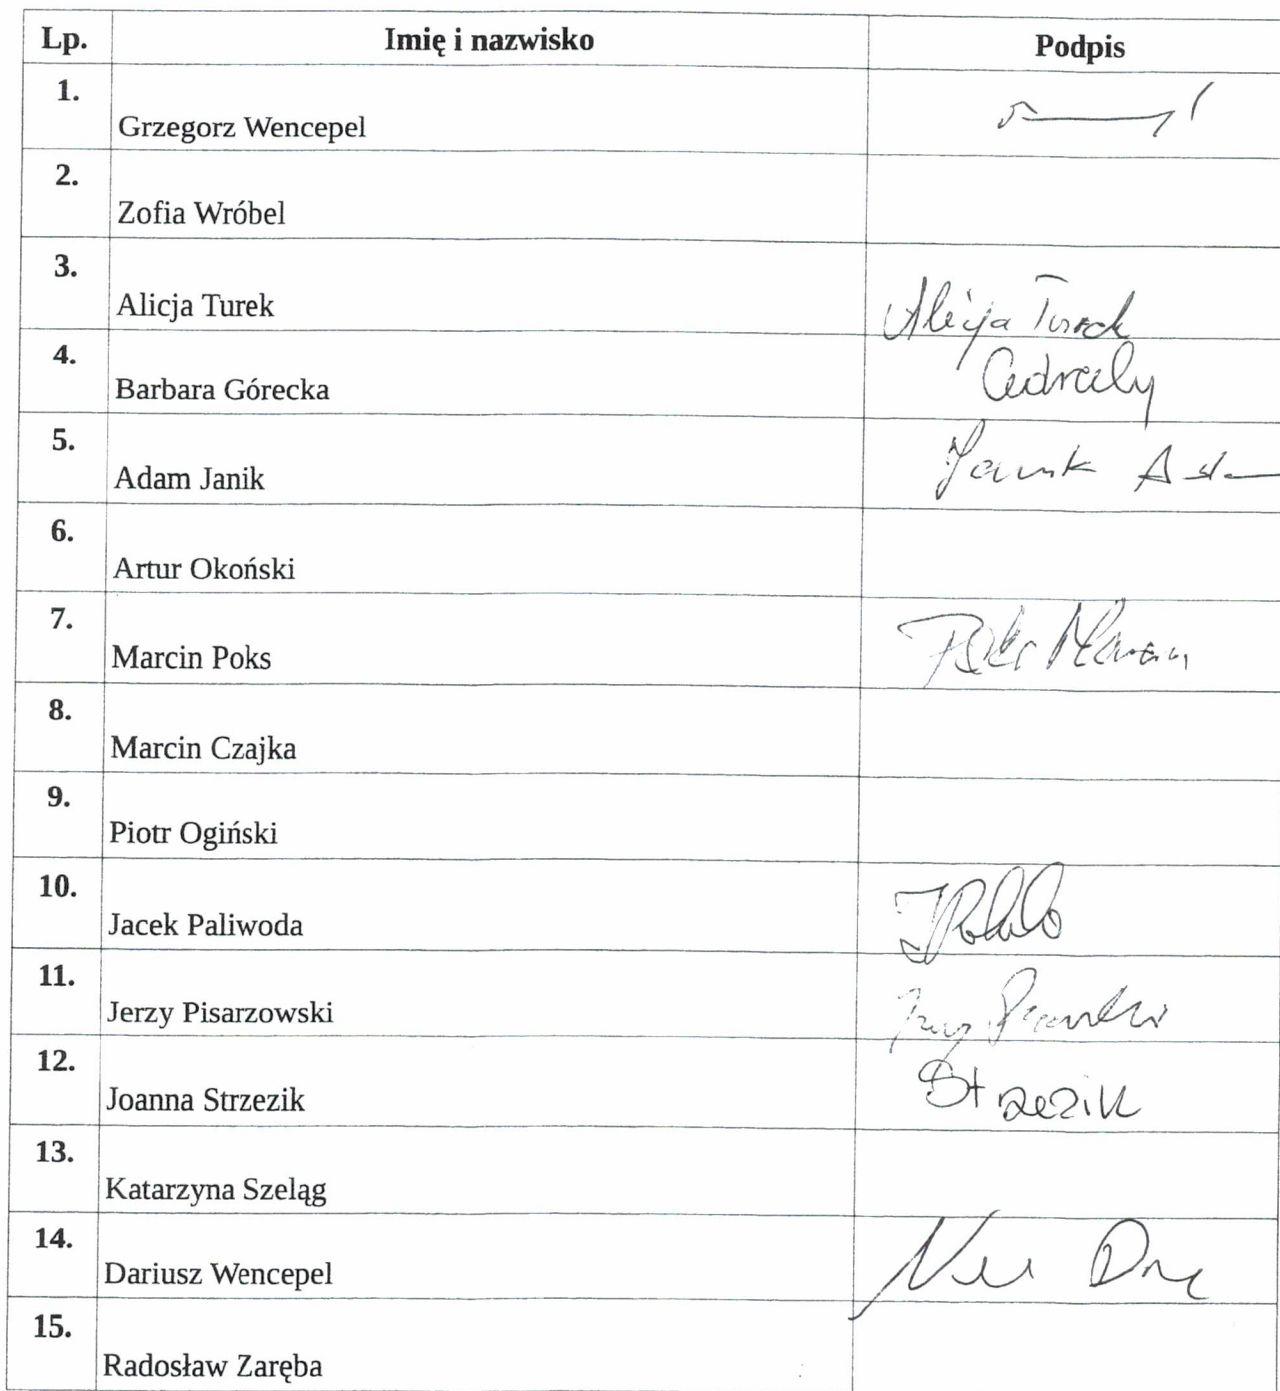 Lp. Imię i nazwisko Podpis
1. Grzegorz Wencepel
2. Zofia Wróbel
3. Alicja Turek Alicja Turek
4. Barbara Górecka
5. Adam Janik Janik Adam
6. Artur Okoński
7. Marcin Poks Poks Marcin
8. Marcin Czajka
9. Piotr Ogiński
10. Jacek Paliwoda
11. Jerzy Pisarzowski
12. Joanna Strzezik Strzezik
13. Katarzyna Szeląg
14. Dariusz Wencepel
15. Radosław Zaręba